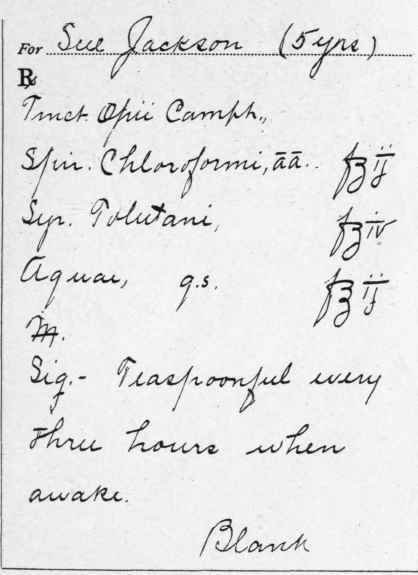 For Sue Jackson (5 yrs)
℞
Tinct. Opii Camph.,
Spir. Chloroformi, āā. fʒij
Syr. Tolutani, fʒiv
Aquae, q.s. f℥ij
M.
Sig.- Teaspoonful every
three hours when
awake.
Blank